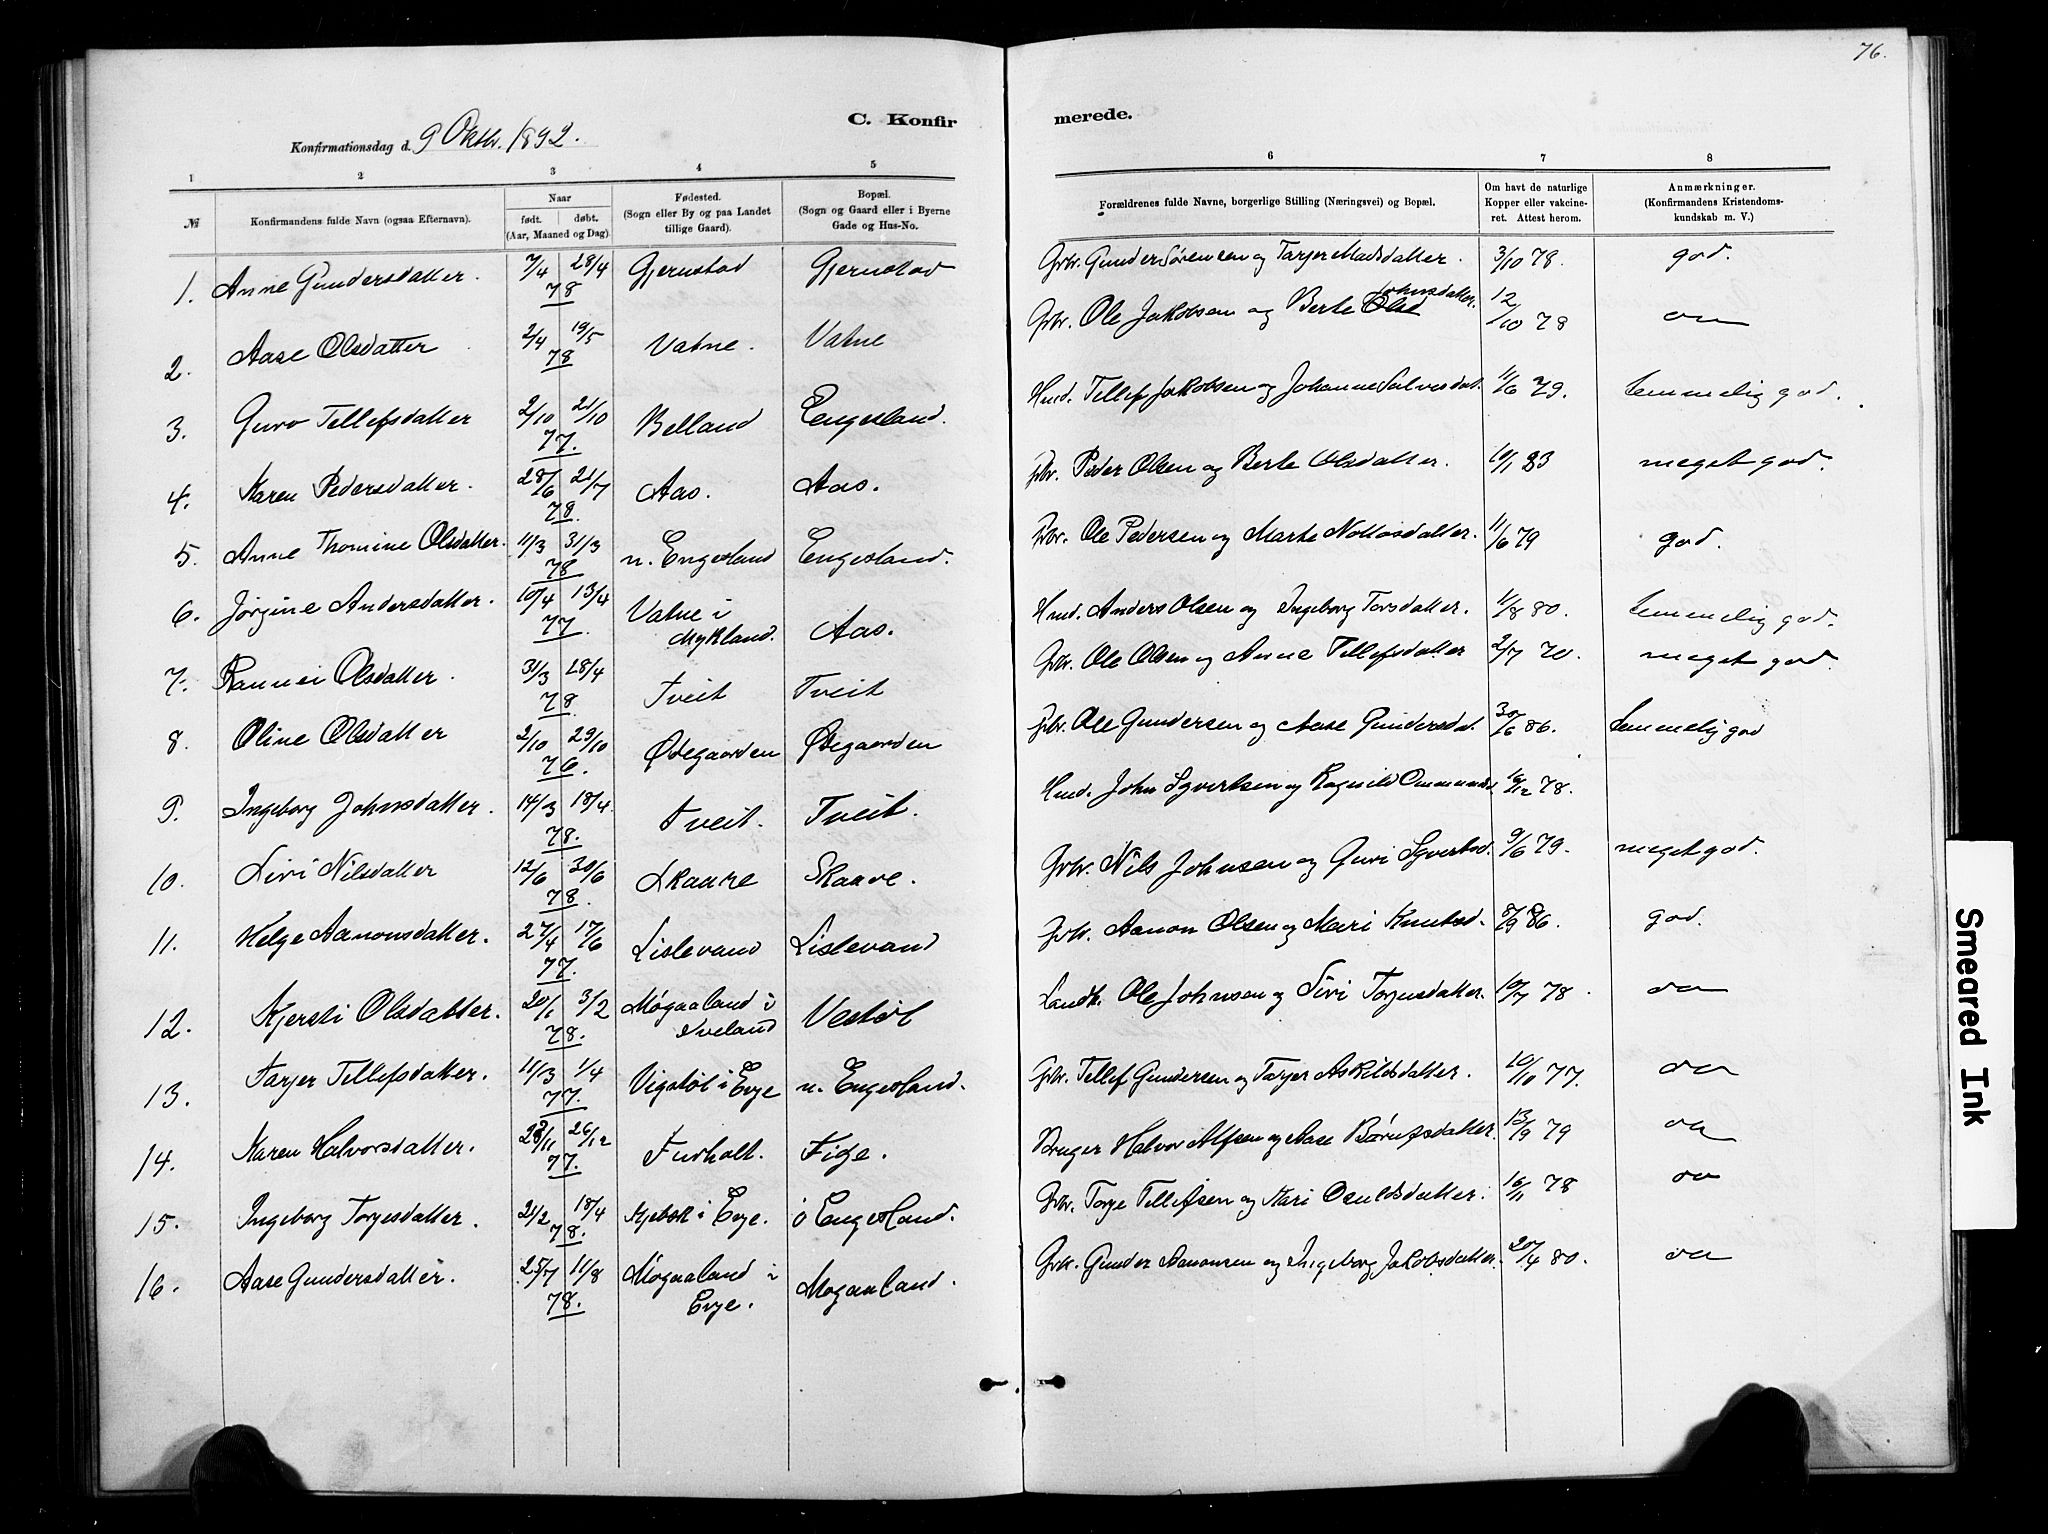 76.
C. Konfirmerede.
Konfirmationsdag d. 9 Oktbr. 1892.
1 2 3 4 5 6 7 8
№ Konfirmandens fulde Navn (ogsaa Efternavn). Naar født. døbt. (Aar, Maaned og Dag). Fødested. (Sogn eller By og paa Landet tillige Gaard). Bopæl. (Sogn og Gaard eller i Byerne Gade og Hus-No. Forældrenes fulde Navne, borgerlige Stilling (Næringsvei) og Bopæl. Om havt de naturlige Kopper eller vakcineret. Attest herom. Anmærkninger. (Konfirmandens Kristendomskundskab m. V.)
1. Anne Gundersdatter. 7/4 28/4 78 Gjerustad Gjerustad Gbr. Gunder Sørensen og Tarjer Madsdatter. 3/10 78. god.
2. Aase Olsdatter 2/4 19/5 78 Vatne. Vatne Gbr. Ole Jakobsen og Berte Olsd Johnsdatter. 12/10 78 oa
3. Guro Tellefsdatter 2/10 21/10 77. Belland Engesland. Hmd. Tellef Jakobsen og Johanne Salvesdat. 11/6 79. temmelig god.
4. Karen Pedersdatter. 28/6 21/7 78. Aas. Aas. Gbr. Peder Olsen og Berte Olsdatter. 10/1 83 meget god.
5. Anne Thomine Olsdatter. 11/3 31/3 78 n. Engesland Engesland. Gbr. Ole Pedersen og Marte Nottosdatter. 11/6 79 god.
6. Jørgine Andersdatter. 10/4 13/4 77. Vatne i Mykland. Aas. Hmd. Anders Olsen og Ingeborg Torsdatter. 11/8 80. temmelig god.
7. Rannei Olsdatter. 31/3 28/4 78 Tveit Tveit Gbr. Ole Olsen og Anne Tellefsdatter 2/7 70. meget god.
8. Oline Olsdatter 2/10 29/10 76. Ødegaarden Ødegaarden Gbr. Ole Gundersen og Aase Gundersdat. 30/6 86. temmelig god
9. Ingeborg Johnsdatter. 14/3 18/4. 78. Tveit. Tveit. Hmd. John Syvertsen og Ragnild Ommundsd. 19/12 78.
10. Sivi Nilsdatter 12/6 30/6 78 Skaare Skaare. Gbr. Nils Johnsen og Guri Syvertsd. 9/6 79. meget god.
11. Helge Aanonsdatter. 27/4 17/6 77. Lislevand Lislevand Gbr. Aanon Olsen og Mari Knutsd. 8/9 86. god.
12. Kjersti Olsdatter. 20/1 3/2 78. Møgaaland i Iveland Vestøl Landh. Ole Johnsen og Siri Torjusdatter. 10/7 78. oa
13. Tarjer Tellefsdatter. 11/3 1/4 77. Vigstøl i Evje n. Engesland. Gbr. Tellef Gundersen og Tarjer Askildsdatter. 10/10 77. oa
14. Karen Halvorsdatter. 28/11 26/12 77. Furholt. Fige. Bruger Halvor Alfsen og Aase Børufsdatter. 13/9 79 oa
15. Ingeborg Torjesdatter. 21/2 18/4 78. i Evje. ö Engesland. Gbr. Torje Tellefsen og Mari Osuldsdatter. 16/11 78 oa
16. Aase Gundersdatter. 25/7 11/8 78. Møgaaland i Evje. Mogaaland. Gbr. Gunder Aanonsen og Ingeborg Jakobsdatter. 20/4 80. oa
Smeared Ink